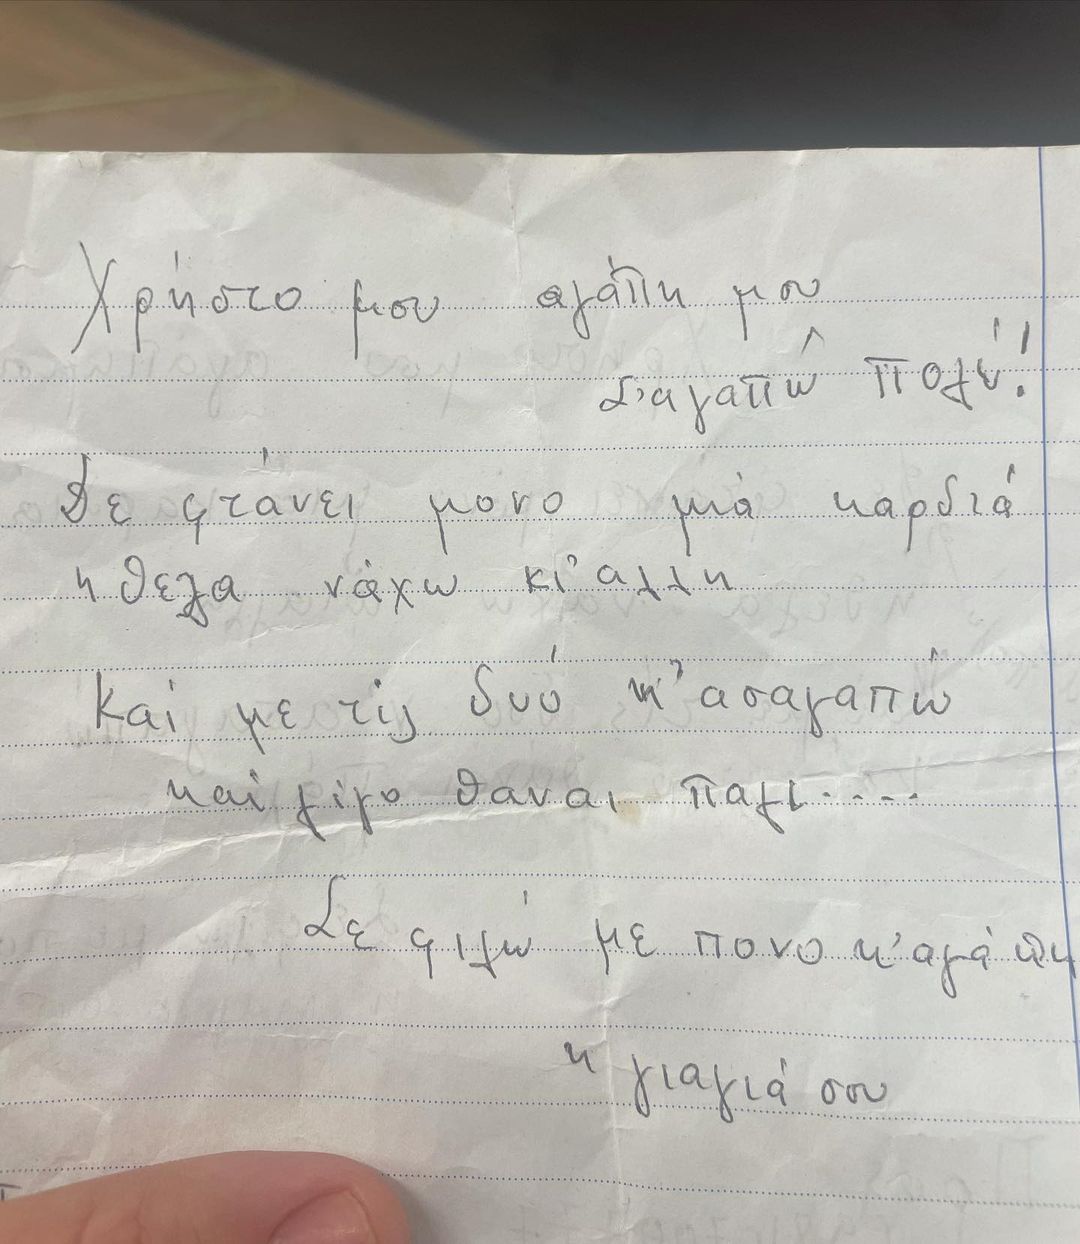 Χρήστο μου αγάπη μου
Σ'αγαπώ πολύ!
Δε φτάνει μονο μιά καρδιά
ηθελα νάχω κι'αλλη
Καί με τίς δυό ν'ασαγαπώ
καί λίγο θαναι παλι....
Σε φιλώ με πονο κ'αγάπη
η γιαγιά σου